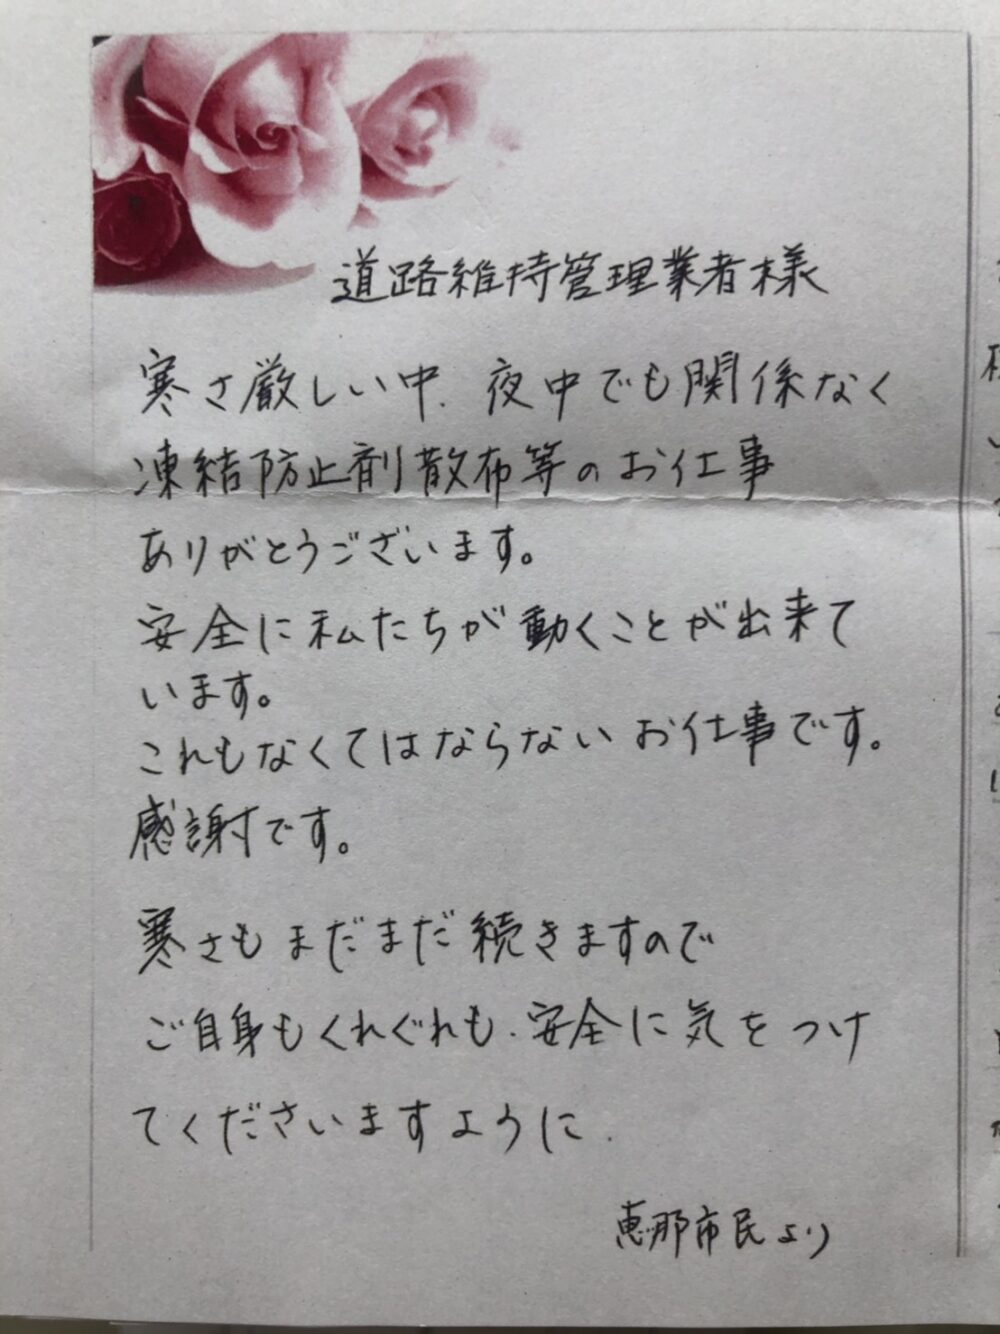 道路維持管理業者様
寒さ厳しい中、夜中でも関係なく
凍結防止剤散布等のお仕事
ありがとうございます。
安全に私たちが動くことが出来て
います。
これもなくてはならないお仕事です。
感謝です。
寒さもまだまだ続きますので
ご自身もくれぐれも、安全に気をつけ
てくださいますように.
恵那市民より